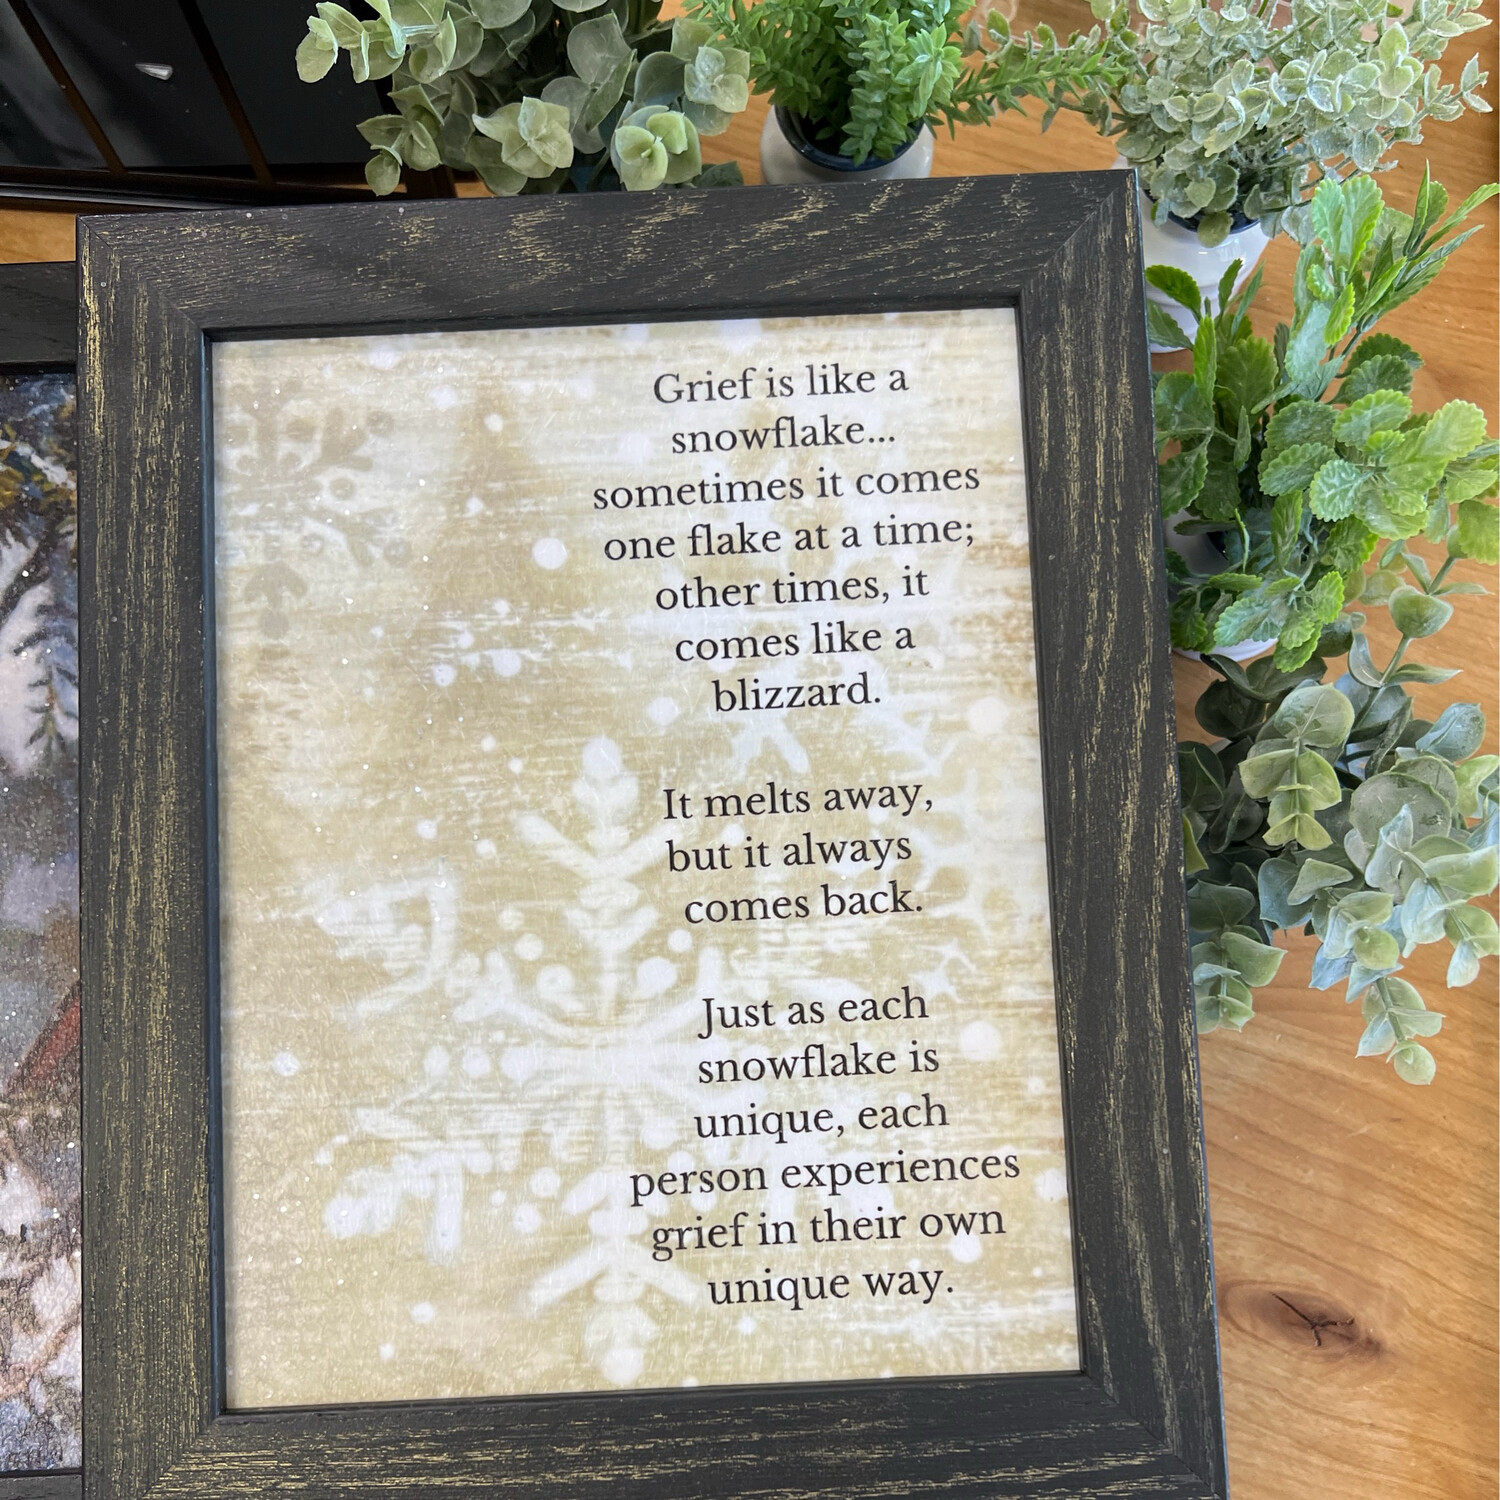 Grief is like a
snowflake...
sometimes it comes
one flake at a time;
other times, it
comes like a
blizzard.
It melts away,
but it always
comes back.
Just as each
snowflake is
unique, each
person experiences
grief in their own
unique way.